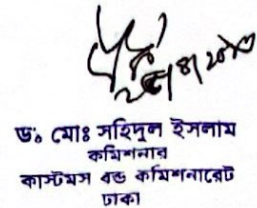 ড. মোঃ সহিদুল ইসলাম
কমিশনার
কাস্টমস বন্ড কমিশনারেট
ঢাকা